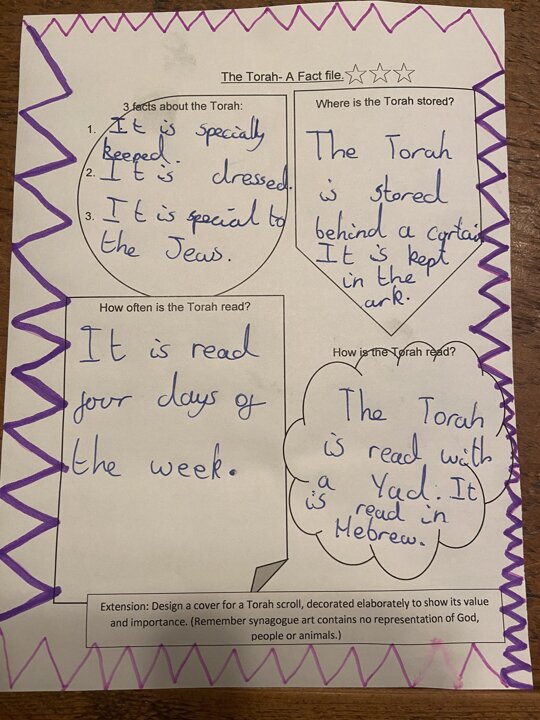 The Torah- A Fact file.
3 facts about the Torah:
1. It is specially
keeped.
2. It is dressed.
3. It is special to
the Jews.
Where is the Torah stored?
The Torah
is stored
behind a cartain
It is kept
in the
ark.
How often is the Torah read?
It is read
four days of
the week.
How is the Torah read?
The Torah
is read with
a Yad. It
is read in
Hebrew.
Extension: Design a cover for a Torah scroll, decorated elaborately to show its value
and importance. (Remember synagogue art contains no representation of God,
people or animals.)